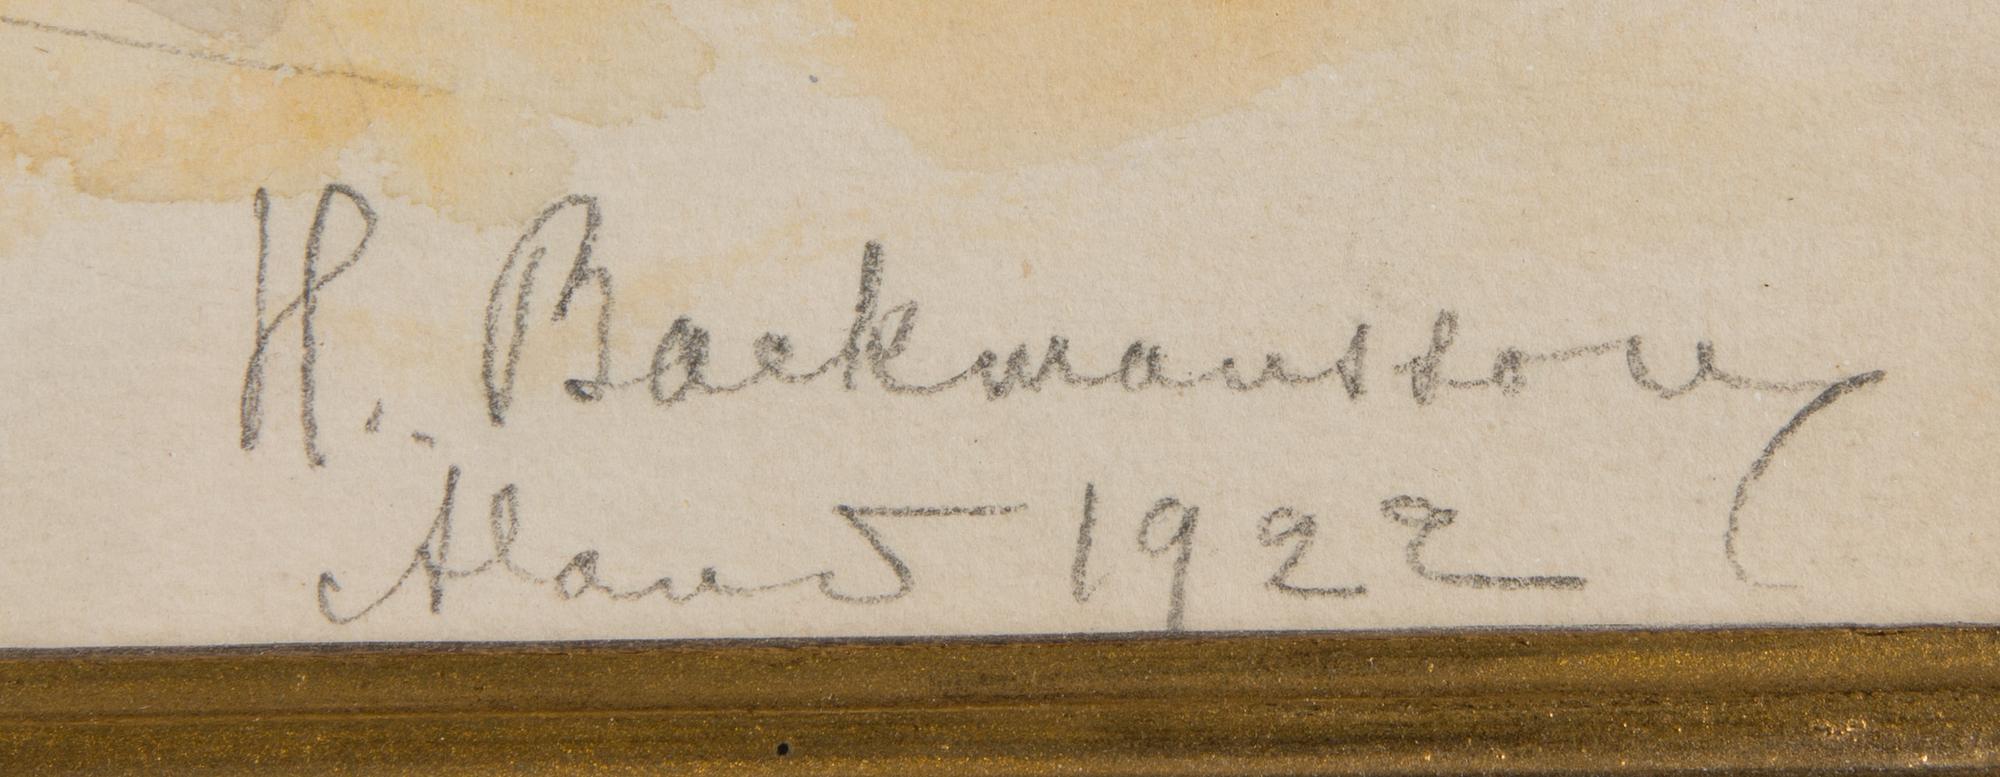 H. Backmansson
Åland 1922